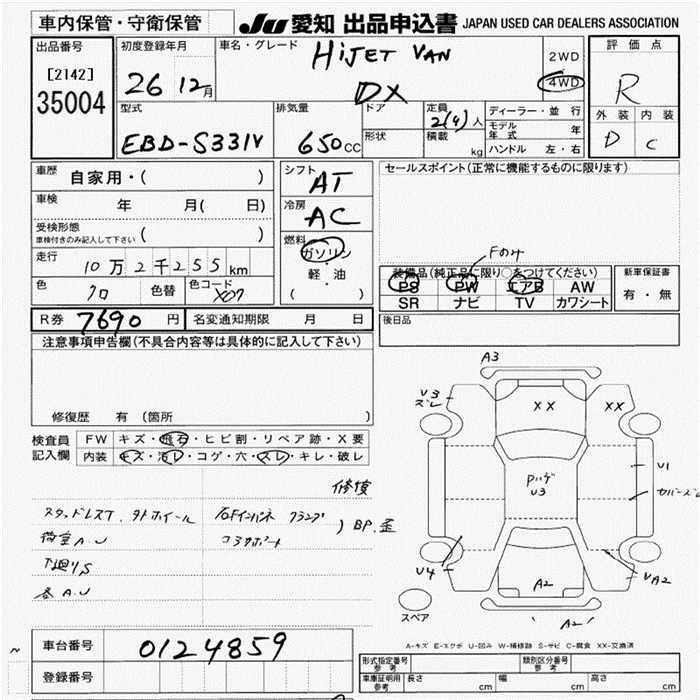 車内保管・守衛保管
JU 愛知 出品申込書 JAPAN USED CAR DEALERS ASSOCIATION
出品番号
[2142]
35004
初度登録年月
26 12月
車名・グレード
HiJET VAN
DX
2WD
4WD
評価点
R
外装 内装
D C
型式
EBD-S331V
排気量
650cc
ドア
形状
定員
2(4)人
積載
kg
ディーラー・並 行
モデル年式 年
ハンドル 左・右
車歴
自家用・( )
車検
年 月( 日)
受検形態
車検付きのみ記入して下さい ( )
走行
10万2千255km
色
クロ
色替
色コード
X07
シフト
AT
冷房
AC
燃料
ガソリン
軽・油
( )
セールスポイント(正常に機能するものに限ります)
Fのみ
装備品(純正品に限り○をつけてください)
PS PW エアB AW
SR ナビ TV カワシート
新車保証書
有・無
R券 7690 円
名変通知期限 月 日
後日品
注意事項申告欄(不具合内容等は具体的に記入して下さい)
修復歴 有 (箇所
検査員記入欄
FW キズ・飛石・ヒビ割・リペア跡・X要
内装 キズ・汚レ・コゲ・穴・スレ・キレ・破レ
修復
スタッドレスT、外ホイール
荷室A.U
下廻りS
各A.U
右Fインパネ クランプ
コラサポート
) BP.歪
A3
U3
ズレ
XX
XX
Pハゲ
U3
U1
カバーズレ
U4
A2
UA2
A2
スペア
A-キズ E-エクボ U-凹み W-補修跡 S-サビ C-腐食 XX-交換済
車台番号
0124859
登録番号
形式指定番号
参考
類別区分番号
参考
車庫証明用
参考
長さ cm
幅 cm
高さ cm